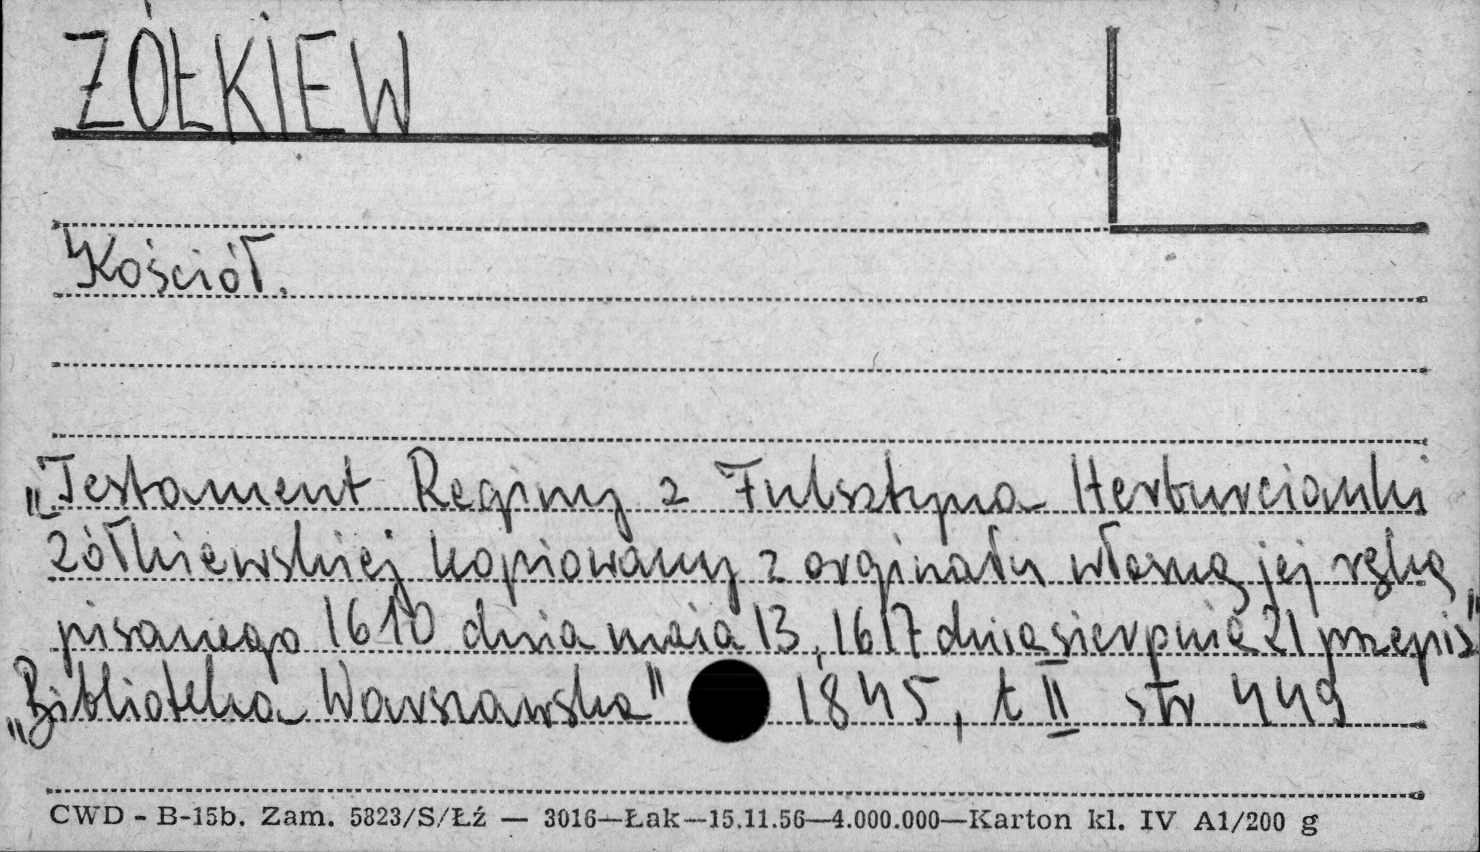 ŻÓŁKIEW
Kościół.
„Testament Reginy z Fulsztyna Herburcianki
Żółkiewskiej kopiowany z orginału własną jej ręką
pisanego 1610 dnia maia 13, 1617 dnia sierpnia 21 przepis"
„Biblioteka Warszawska" 1845, t II str 449
CWD - B-15b. Zam. 5823/S/Łź — 3016—Łak—15.11.56—4.000.000—Karton kl. IV A1/200 g